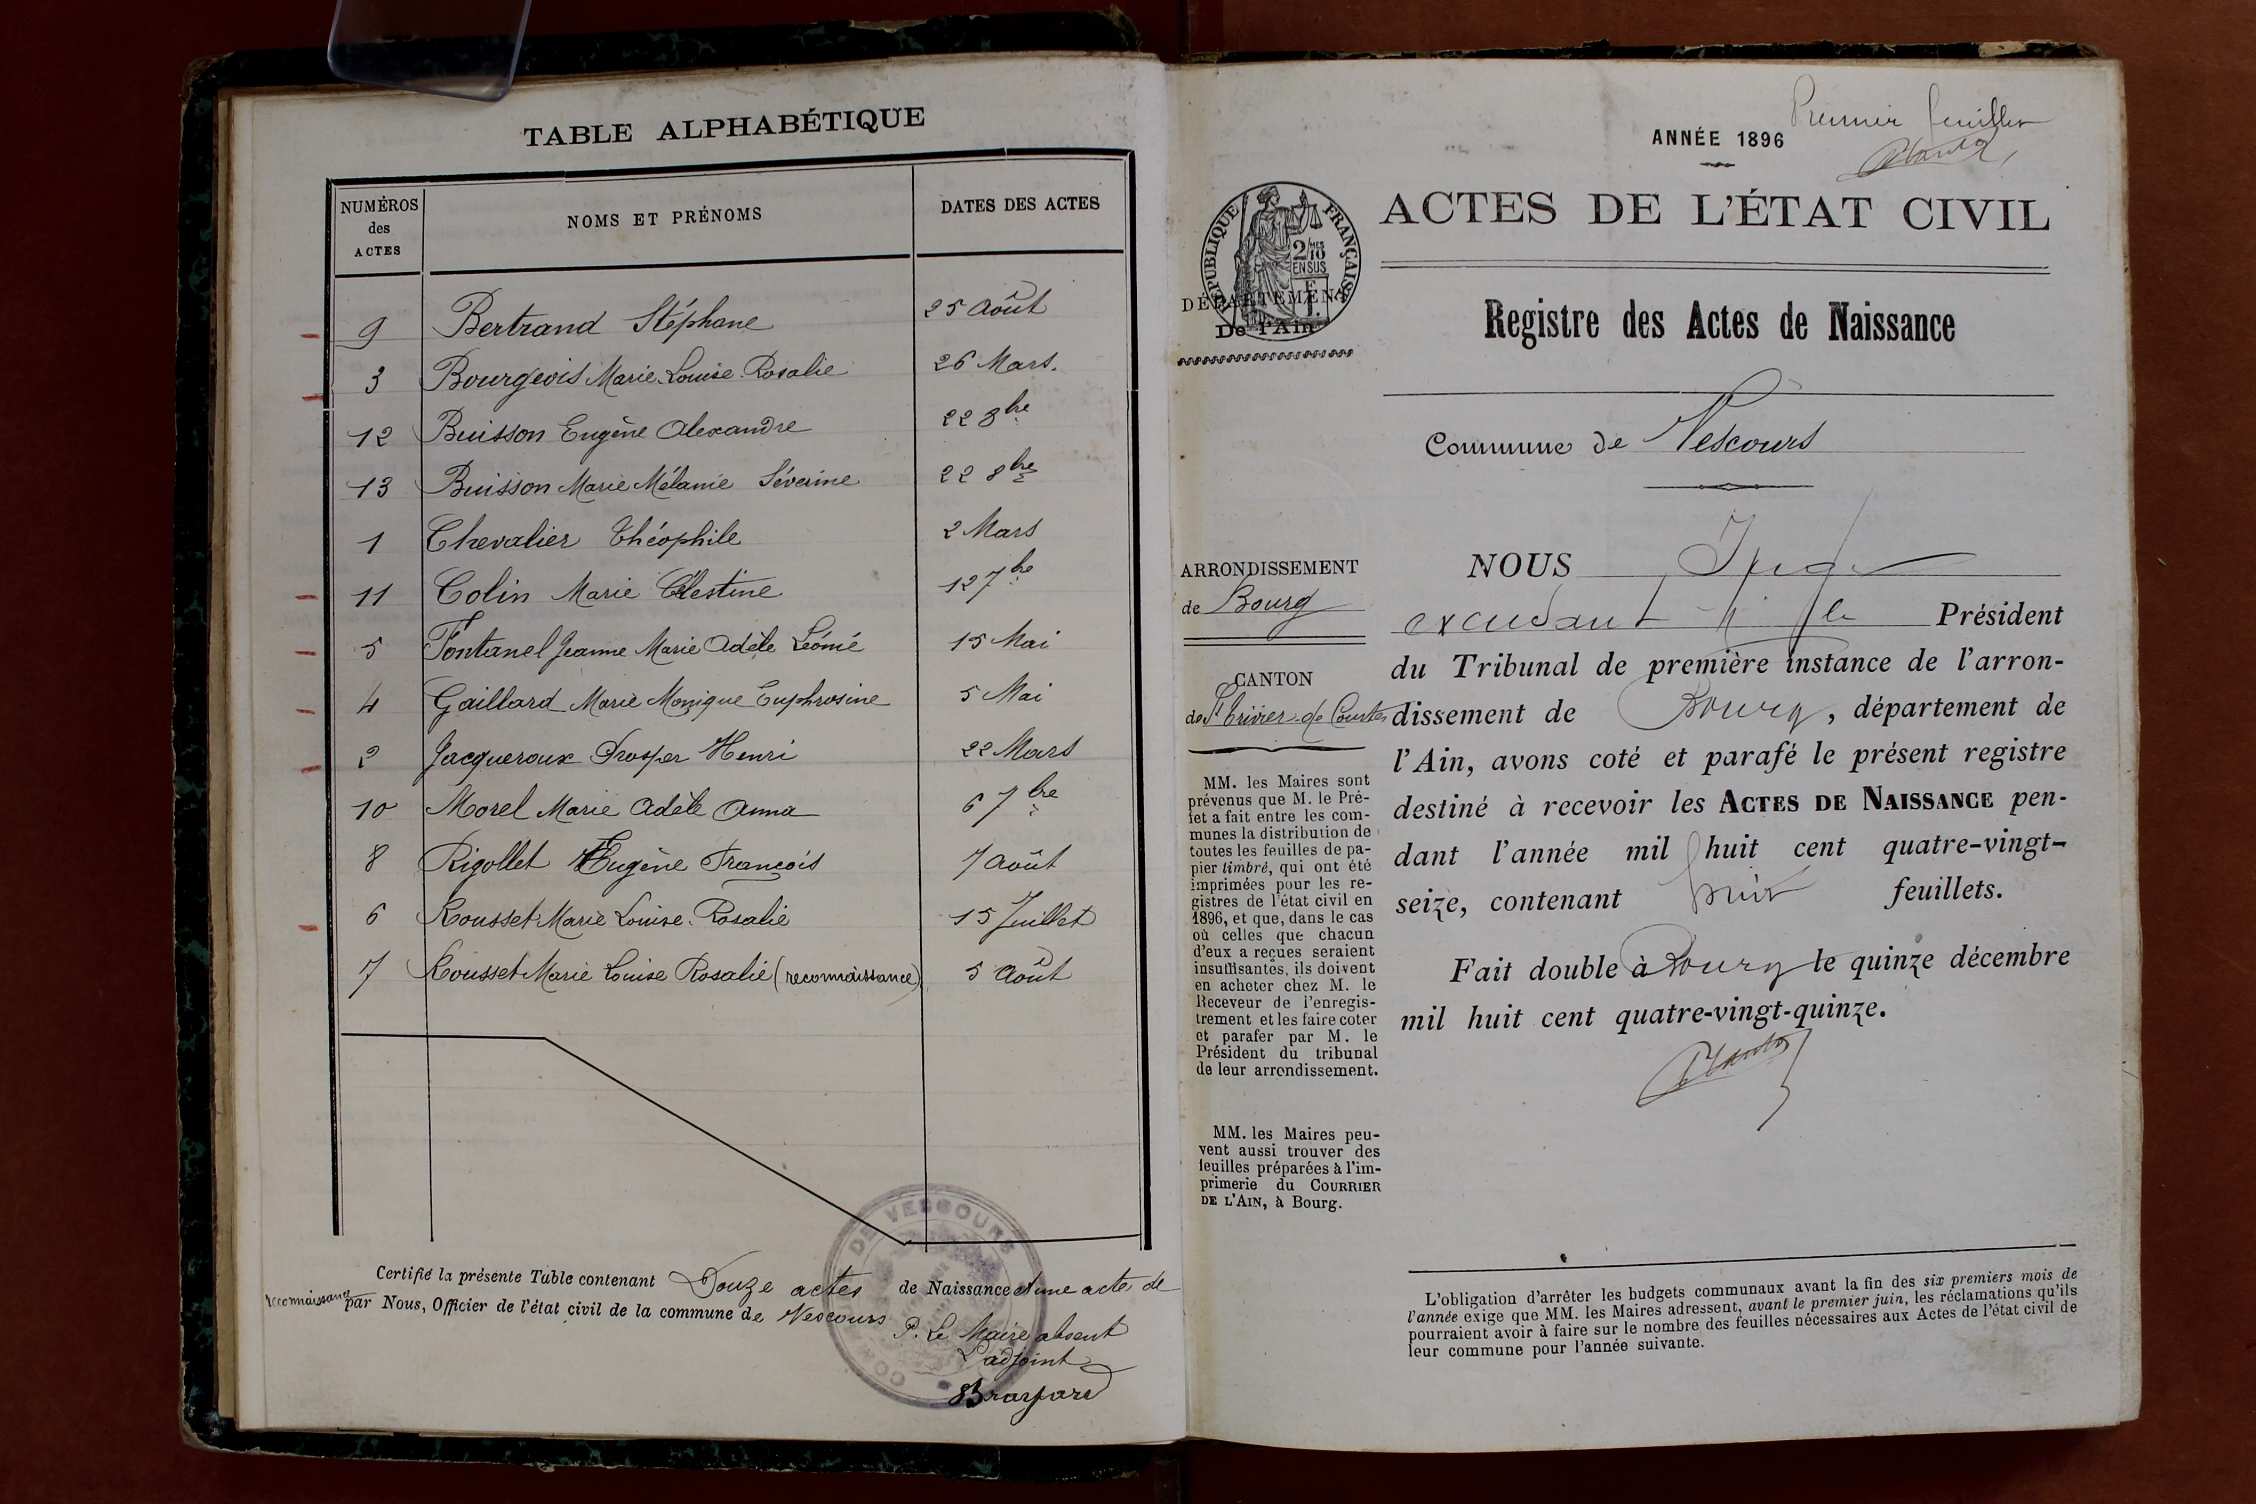 TABLE ALPHABÉTIQUE
NUMÉROS des ACTES
NOMS ET PRÉNOMS
DATES DES ACTES
9 Bertrand Stéphane 25 Août
3 Bourgeois Marie Louise Rosalie 26 Mars.
12 Buisson Eugène Alexandre 22 8bre
13 Buisson Marie Mélanie Séverine 22 8bre
1 Chevalier Théophile 2 Mars
11 Colin Marie Célestine 12 7bre
5 Fontanel Jeanne Marie Adèle Léonie 15 Mai
4 Gaillard Marie Monique Euphrosine 5 Mai
2 Jacqueroux Prosper Henri 22 Mars
10 Morel Marie Adèle Anna 6 7bre
8 Rigollet Eugène François 7 Août
6 Rousset Marie Louise Rosalie 15 Juillet
7 Rousset Marie Louise Rosalie (reconnaissance) 5 Août
Certifié la présente Table contenant Douze actes de Naissance et une acte de
reconnaissance par Nous, Officier de l'état civil de la commune de Vescours
P. Le Maire absent
L'adjoint
DE VESCOURS
Premier feuillet
ANNÉE 1896
ACTES DE L'ÉTAT CIVIL
RÉPUBLIQUE FRANÇAISE
2/10
EN SUS
DÉPARTEMENT
De l'Ain
Registre des Actes de Naissance
Commune de Vescours
ARRONDISSEMENT
de Bourg
CANTON
de St Trivier-de-Courtes
MM. les Maires sont
prévenus que M. le Pré-
fet a fait entre les com-
munes la distribution de
toutes les feuilles de pa-
pier timbré, qui ont été
imprimées pour les re-
gistres de l'état civil en
1896, et que, dans le cas
où celles que chacun
d'eux a reçues seraient
insuffisantes, ils doivent
en acheter chez M. le
Receveur de l'enregis-
trement et les faire coter
et parafer par M. le
Président du tribunal
de leur arrondissement.
MM. les Maires peu-
vent aussi trouver des
feuilles préparées à l'im-
primerie du COURRIER
DE L'AIN, à Bourg.
NOUS Juge
Président
du Tribunal de première instance de l'arron-
dissement de Bourg, département de
l'Ain, avons coté et parafé le présent registre
destiné à recevoir les ACTES DE NAISSANCE pen-
dant l'année mil huit cent quatre-vingt-
seize, contenant huit feuillets.
Fait double à Bourg le quinze décembre
mil huit cent quatre-vingt-quinze.
L'obligation d'arrêter les budgets communaux avant la fin des six premiers mois de
l'année exige que MM. les Maires adressent, avant le premier juin, les réclamations qu'ils
pourraient avoir à faire sur le nombre des feuilles nécessaires aux Actes de l'état civil de
leur commune pour l'année suivante.